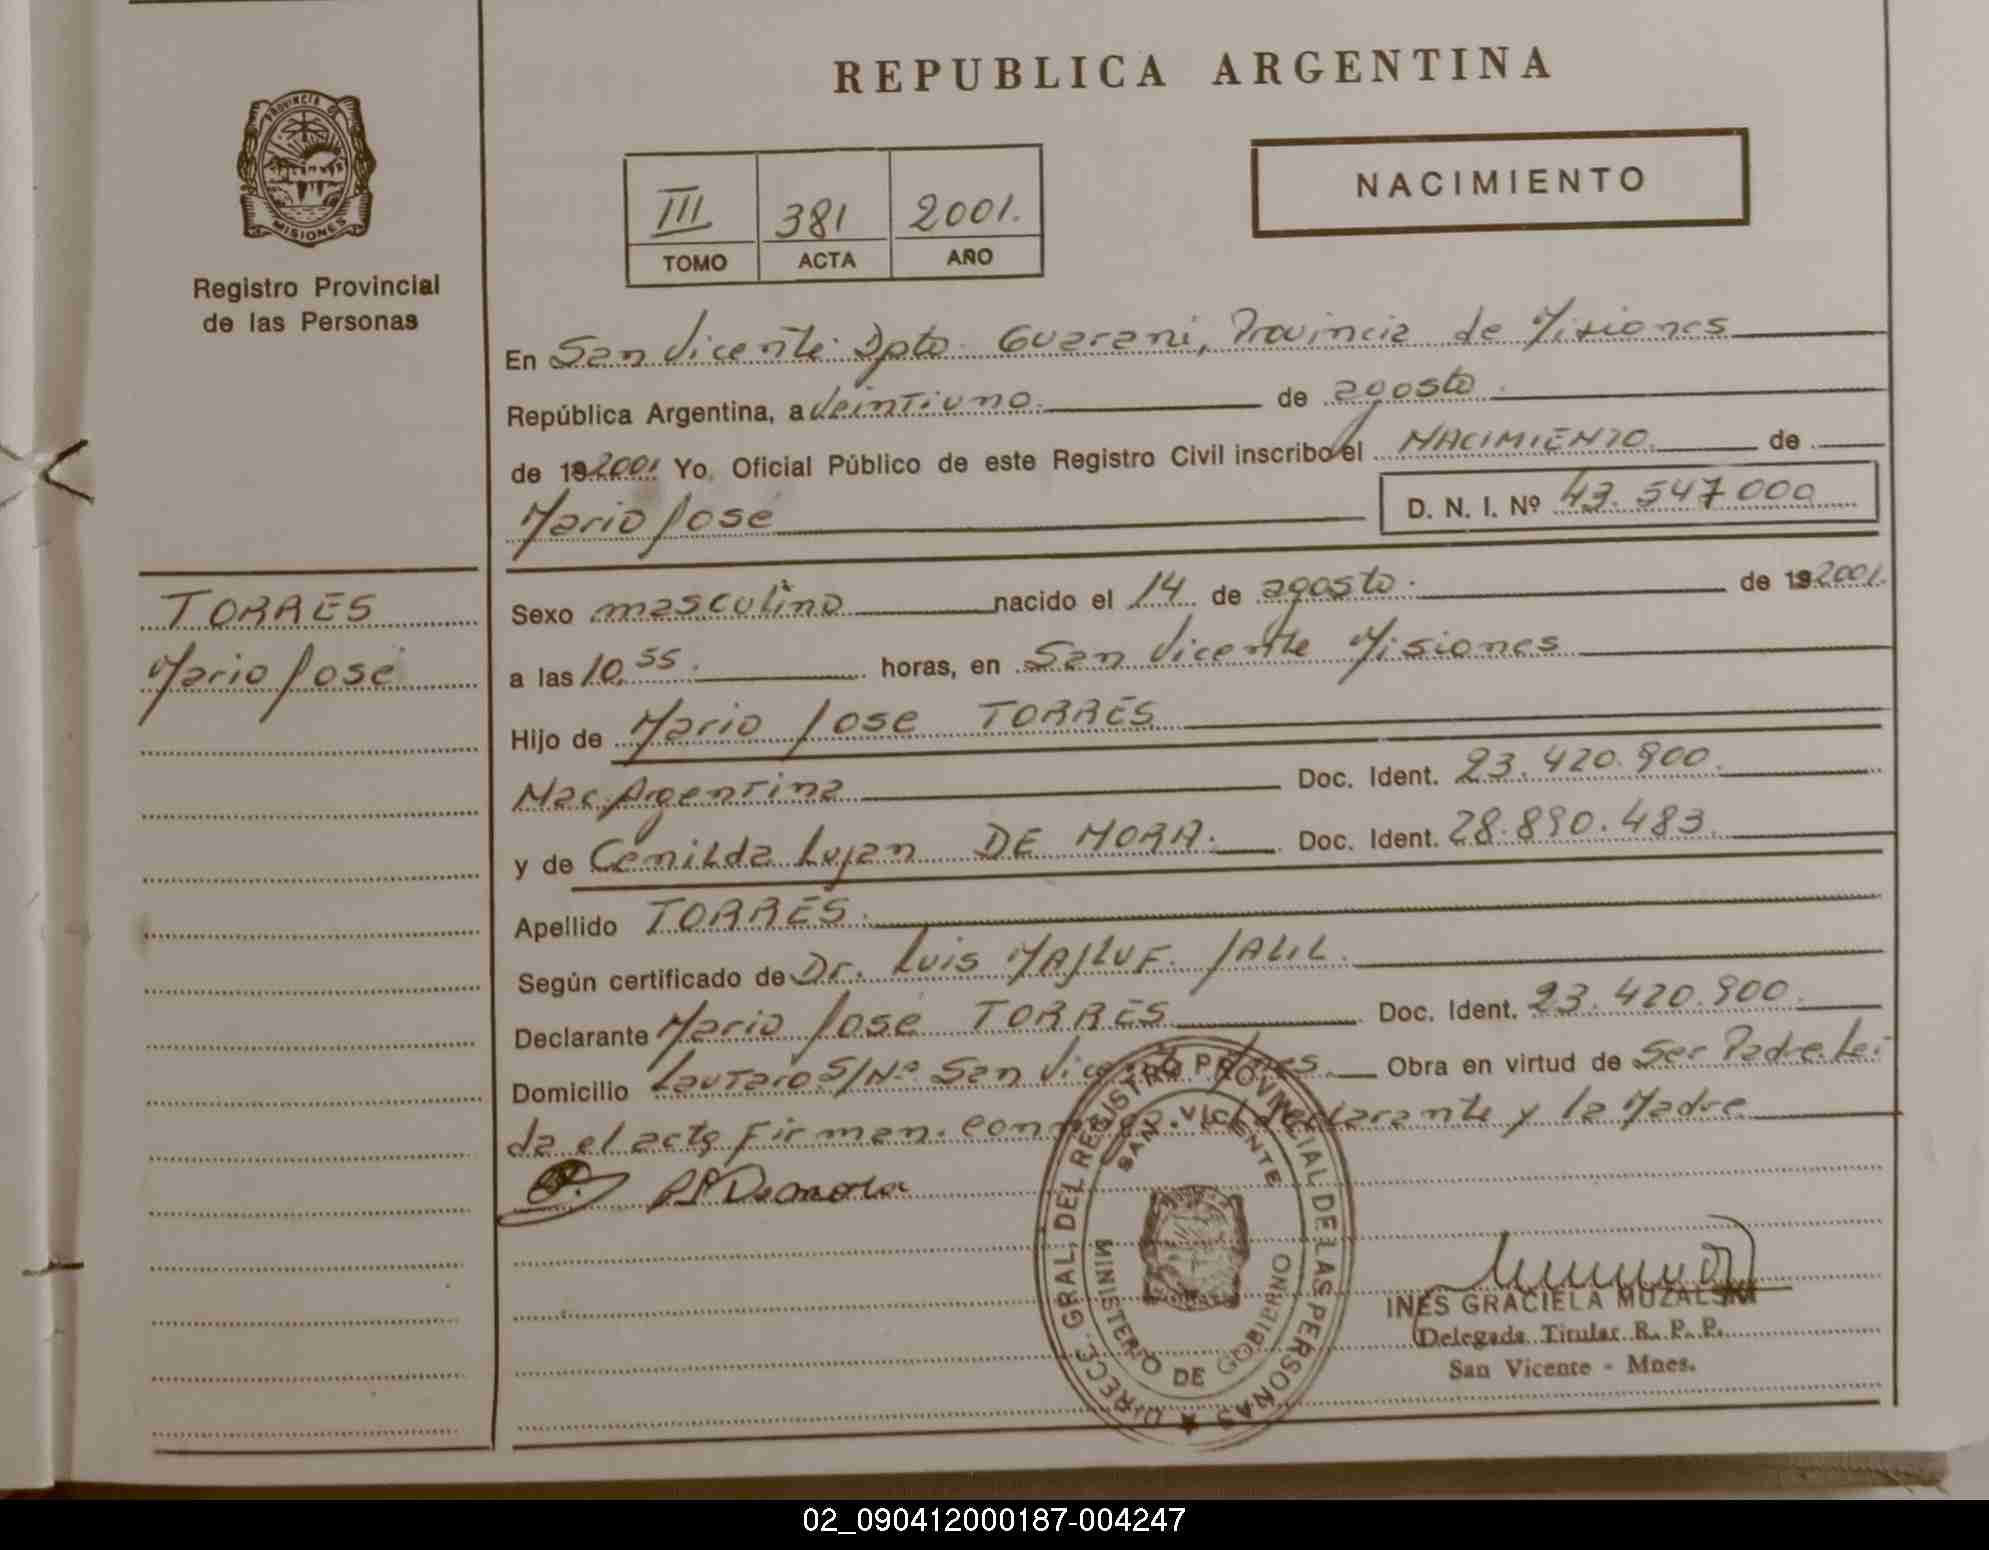 REPUBLICA ARGENTINA
PROVINCIA DE
MISIONES
Registro Provincial
de las Personas
III 381 2001.
TOMO ACTA AÑO
NACIMIENTO
En San Vicente Dpto. Guarani, Provincia de Misiones
República Argentina, a Veintiuno. de agosto.
de 19 2001 Yo, Oficial Público de este Registro Civil inscribo el NACIMIENTO. de
Mario José D. N. I. Nº 43.547000
TORRES
Mario José
Sexo masculino nacido el 14 de agosto. de 19 2001.
a las 10,55. horas, en San Vicente Misiones
Hijo de Mario Jose TORRES
Nac. Argentina Doc. Ident. 23.420.900.
y de Cenilda Lujan DE MORA. Doc. Ident. 28.890.483.
Apellido TORRES.
Según certificado de Dr. Luis MAJLUF JALIL.
Declarante Mario José TORRES Doc. Ident. 23.420.900.
Domicilio Lautaro S/Nº San Vicente Mnes. Obra en virtud de Ser Padre. Lei-
da el acta Firman. conmigo. el declarante y la Madre
DIRECC. GRAL. DEL REGISTRO PROVINCIAL DE LAS PERSONAS
SAN VICENTE
MINISTERIO DE GOBIERNO
INES GRACIELA MUZALSKI
Delegada Titular R. P. P.
San Vicente - Mnes.
02_090412000187-004247